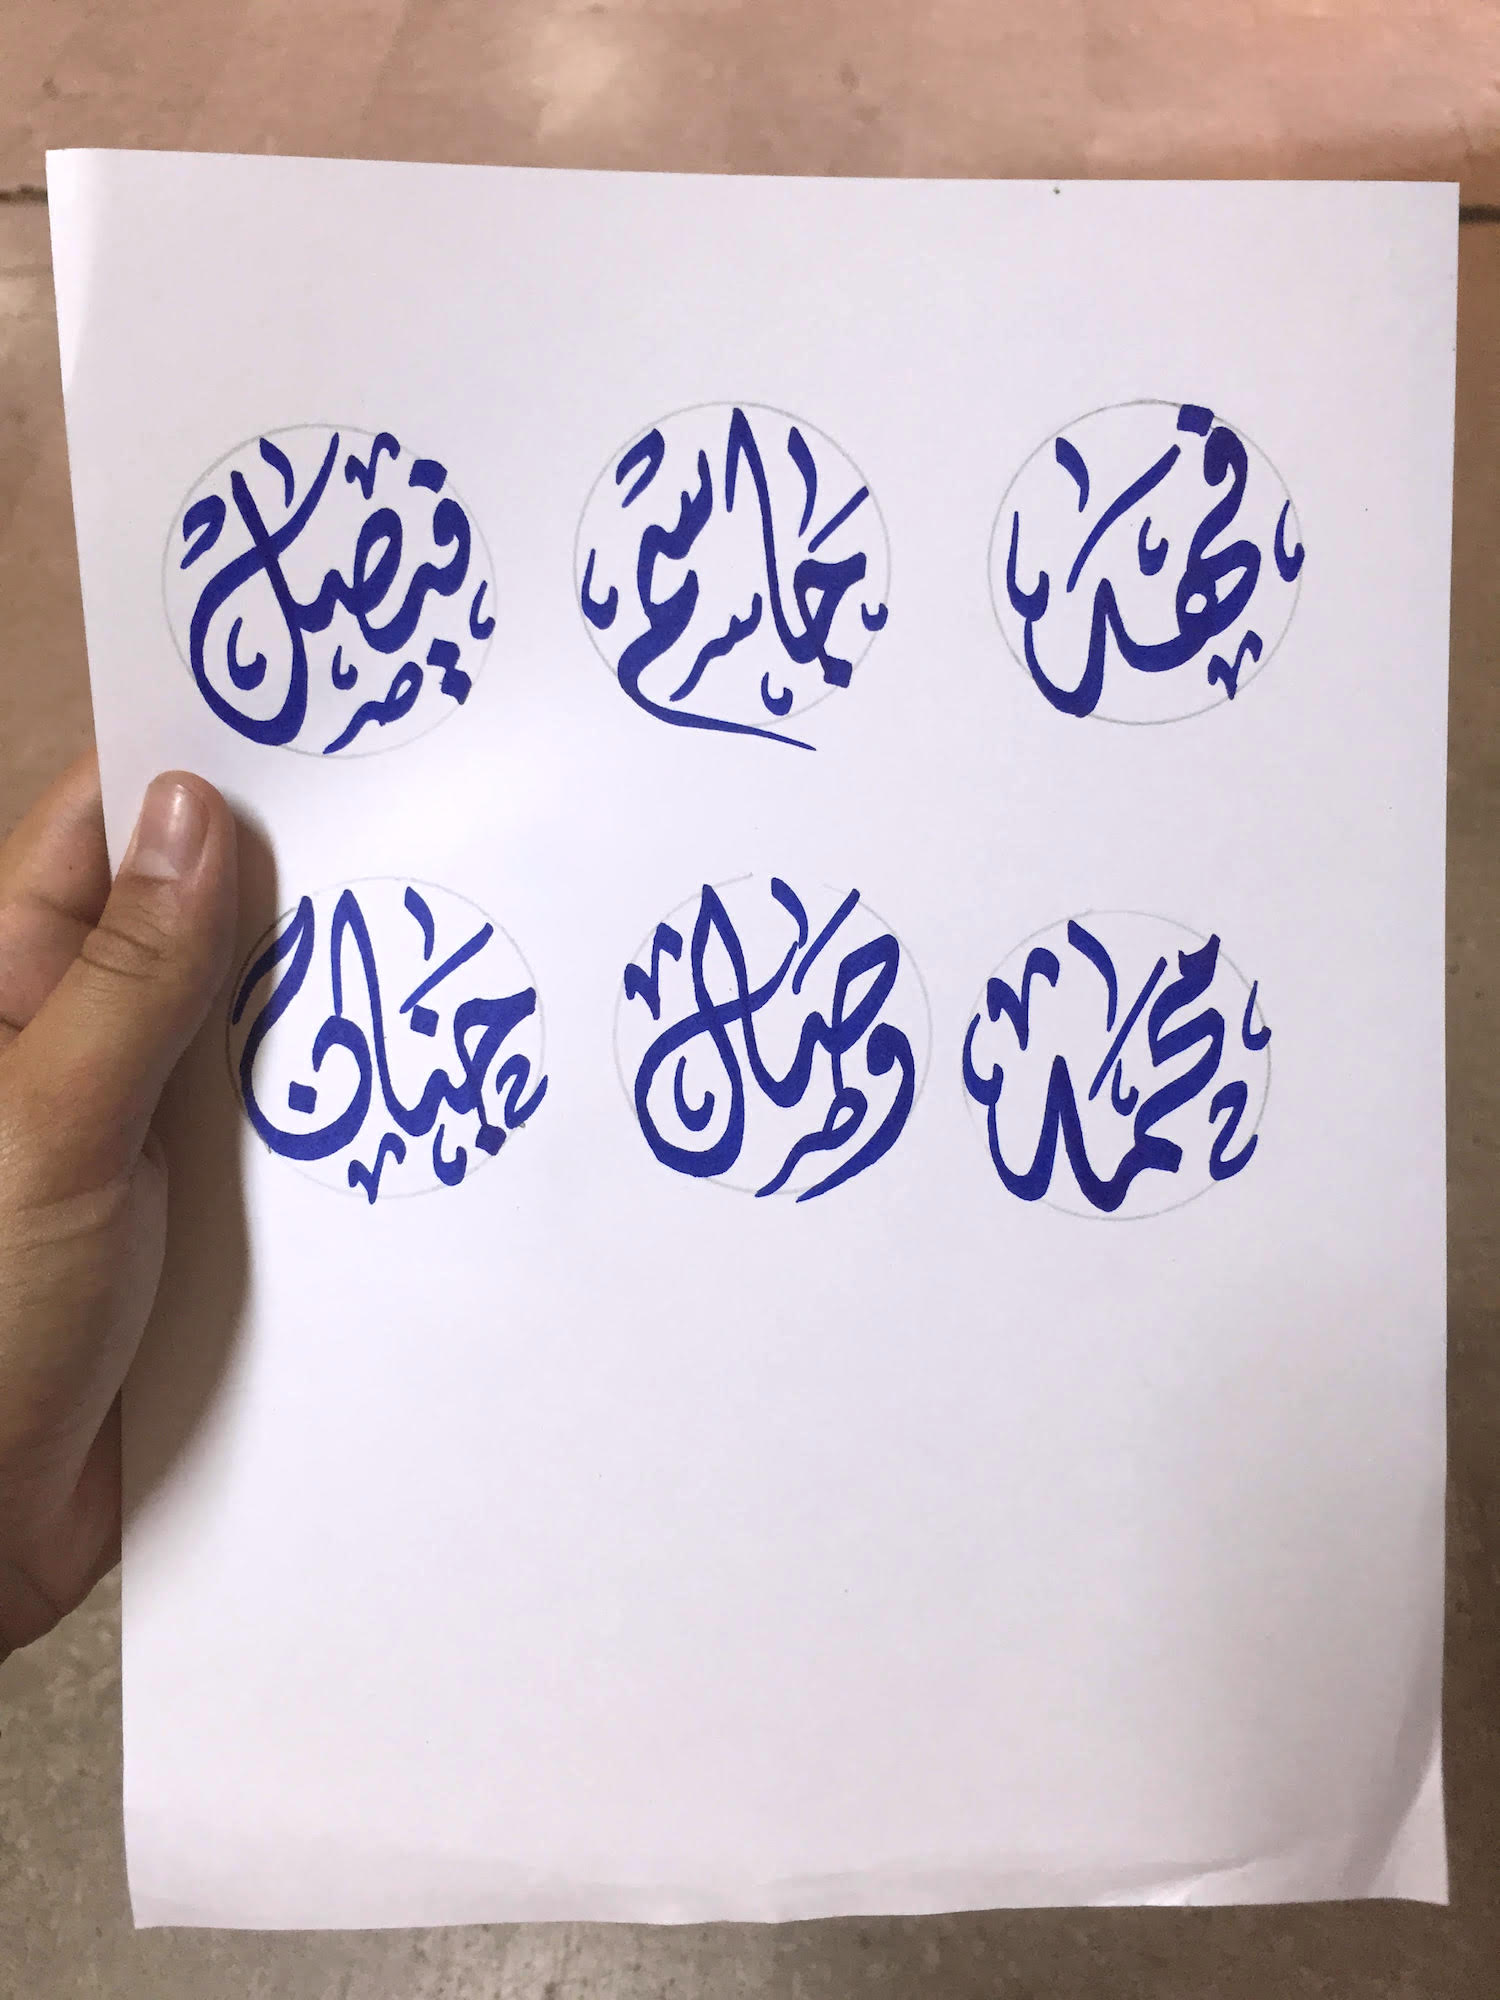 فهد جاسم فيصل
محمد وصل جنان